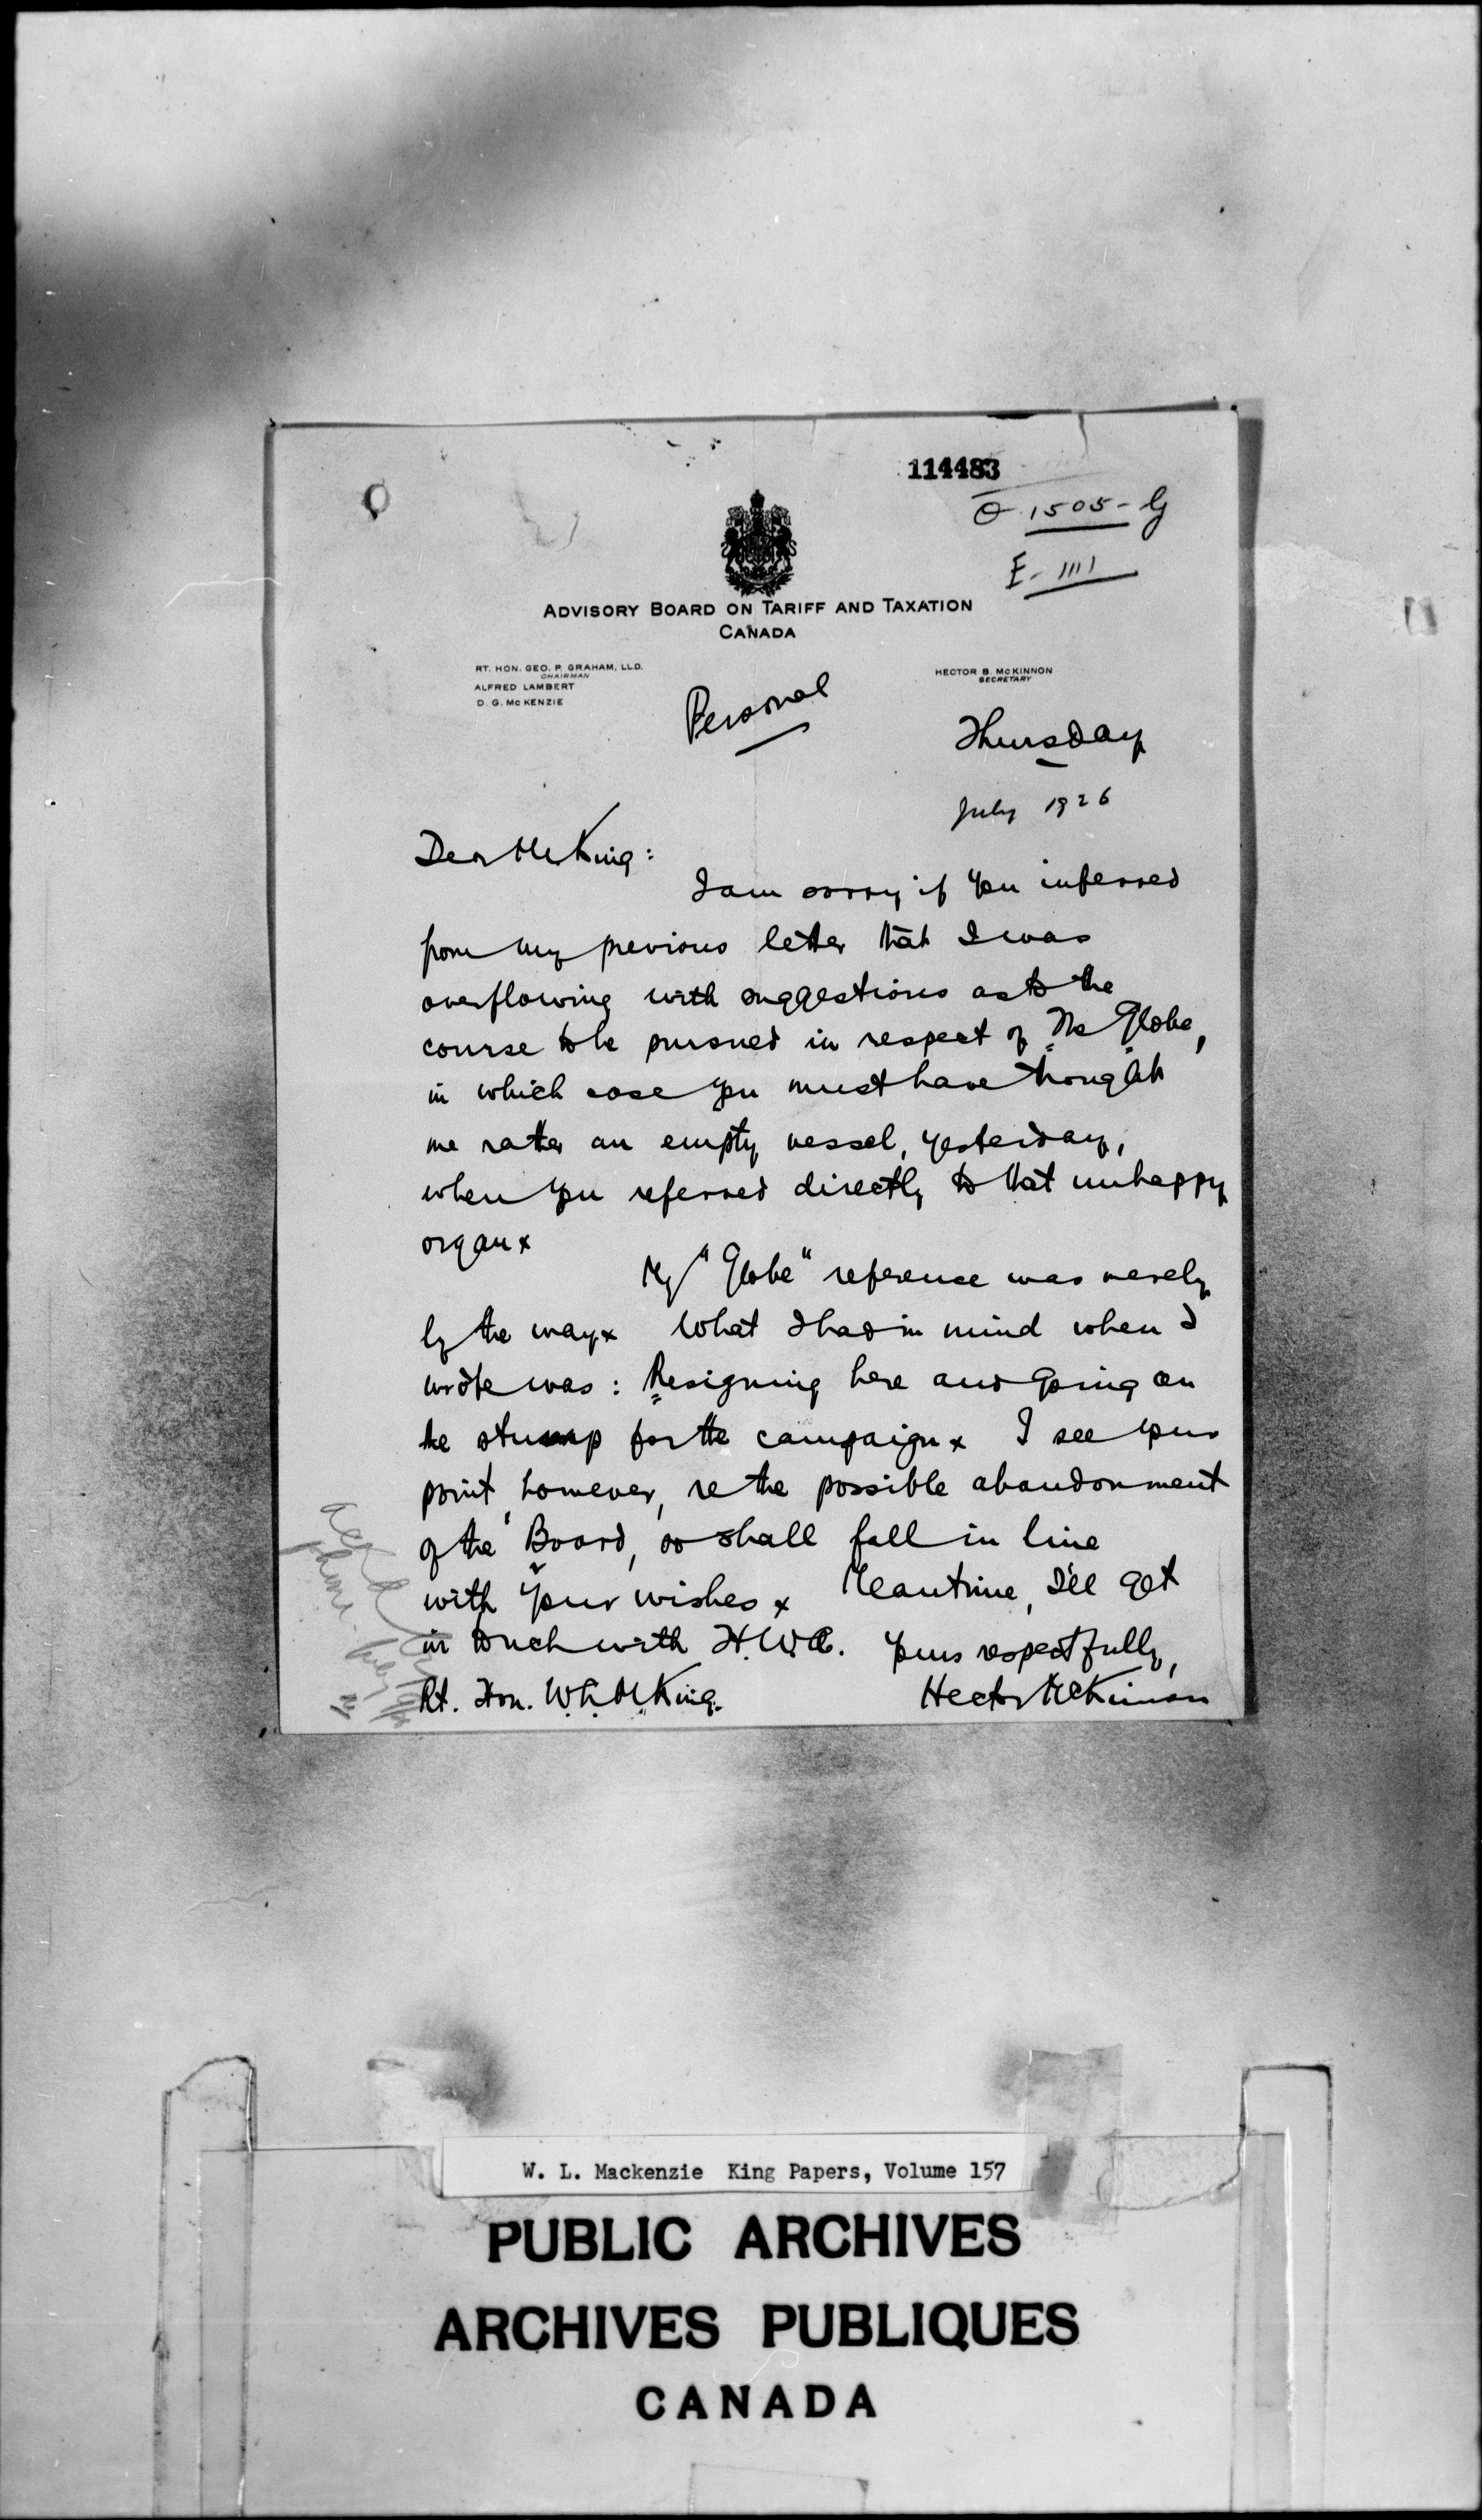 114483
O 1505-G
E-1111
ADVISORY BOARD ON TARIFF AND TAXATION
CANADA
RT. HON. GEO. P. GRAHAM, LL.D.
CHAIRMAN
ALFRED LAMBERT
D. G. McKENZIE
HECTOR B. McKINNON
SECRETARY
Personal
Thursday
July 1926
Dear Mr King:
I am sorry if you inferred
from my previous letter that I was
overflowing with suggestions as to the
course to be pursued in respect of "The Globe",
in which case you must have thought
me rather an empty vessel, yesterday,
when you referred directly to that unhappy
organ x
My "Globe" reference was merely
by the way x What I had in mind when I
wrote was: Resigning here and going on
the stump for the campaign x I see your
point, however, re the possible abandonment
of the Board, so shall fall in line
with your wishes x Meantime, I'll get
in touch with H.W.A. Yours respectfully,
Rt. Hon. W.L.M. King. Hector McKinnon
W. L. Mackenzie King Papers, Volume 157
PUBLIC ARCHIVES
ARCHIVES PUBLIQUES
CANADA